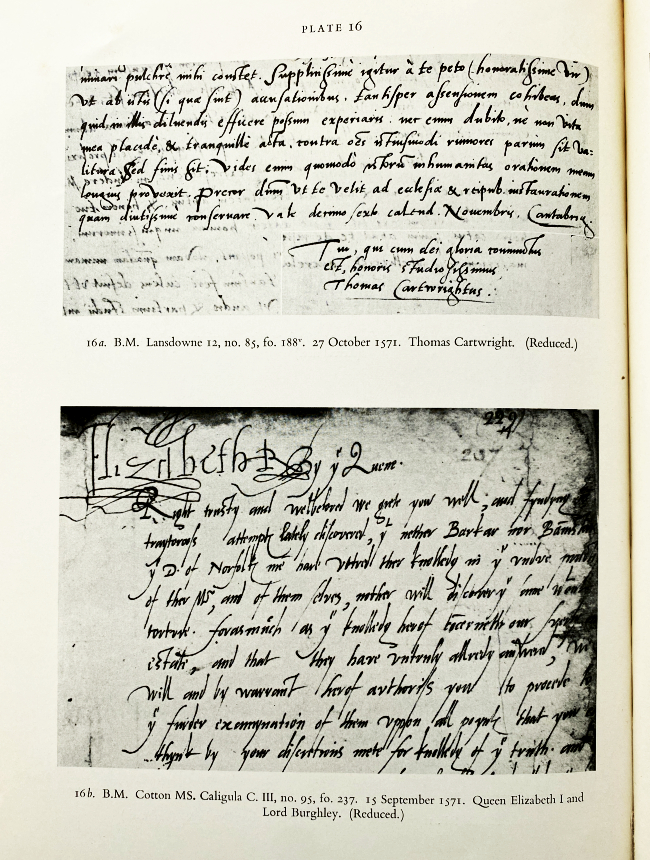 PLATE 16
minari pulchrè mihi constet. Supplicissime igitur à te peto (honoratissime Vir)
Vt ab istis (si quæ sint) accusationibus, tantisper assensionem cohibeas, dum
quid in illis diluendis efficere possum experiaris. nec enim dubito, ne non Vita
mea placide, & tranquille acta, contra oẽs istiusmodi rumores parum sit Va-
litura. Sed finis sit. Vides enim quomodo vestra inhumanitas orationem meam
longius provexit. Precor dñm vt te velit ad eclesiæ & reipub. instaurationem
quam diutissime conservare. Vale decimo sexto calend. Novembris, Cantabrig.
Tui, qui cum dei gloria coniunctus
est, honoris studiosissimus
Thomas Cartwrightus.
16a. B.M. Lansdowne 12, no. 85, fo. 188v. 27 October 1571. Thomas Cartwright. (Reduced.)
229
237
Elizabeth R By yᵉ Quene.
Right trusty and welbeloved we grete you well, and fyndyng
traytorass attempts lately discovered, yᵗ nether Barkar nor Banist
yᵉ D. of Norfolks me have vttred ther knolledg in yᵉ
of ther Mʳ, and of them selves, nether will discover yᵉ same
torture. forasmuch as yᵉ knolledg herof cõcerneth our
estate, and that they have vntruly allredy answered, We
will and by warrant herof authoriss you to procede
yᵉ furder examynation of them vppon all poynts that you
thynk by your discretions mete for knolledg of yᵉ truth. and
16b. B.M. Cotton MS. Caligula C. III, no. 95, fo. 237. 15 September 1571. Queen Elizabeth I and
Lord Burghley. (Reduced.)